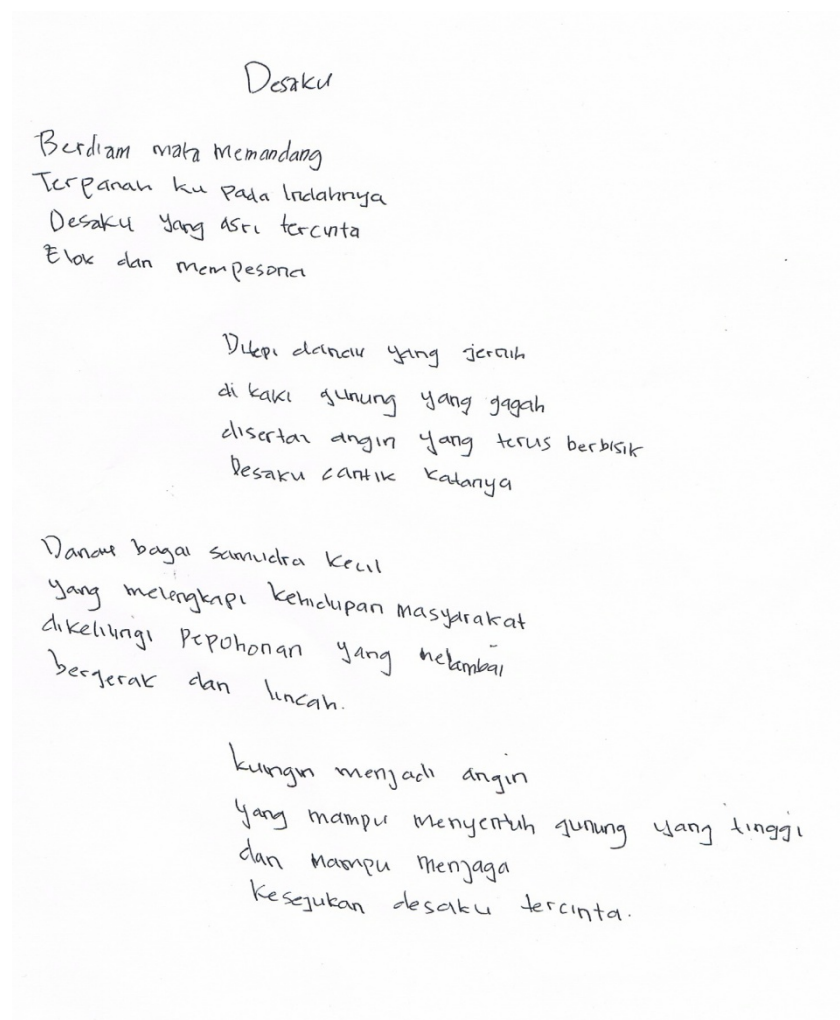 Desaku
Berdiam mata memandang
Terpanah ku pada Indahnya
Desaku yang asri tercinta
Elok dan mempesona
Ditepi danau yang jernih
di kaki gunung yang gagah
disertai angin yang terus berbisik
Desaku cantik katanya
Danau bagai samudra kecil
yang melengkapi kehidupan masyarakat
dikelilingi pepohonan yang melambai
bergerak dan lincah.
kuingin menjadi angin
yang mampu menyentuh gunung yang tinggi
dan mampu menjaga
kesejukan desaku tercinta.